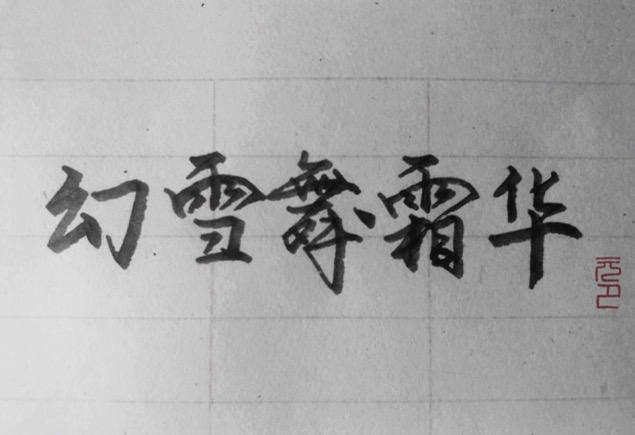 幻雪舞霜华